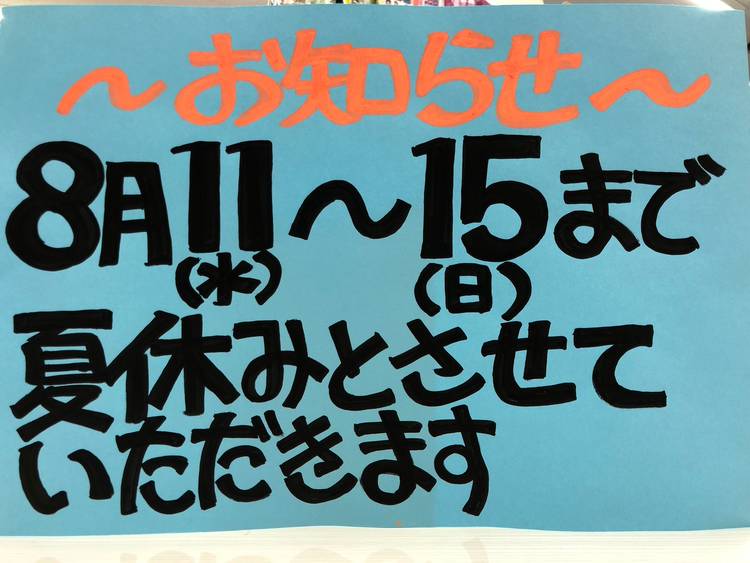 ～お知らせ～
8月11～15まで
(水) (日)
夏休みとさせて
いただきます